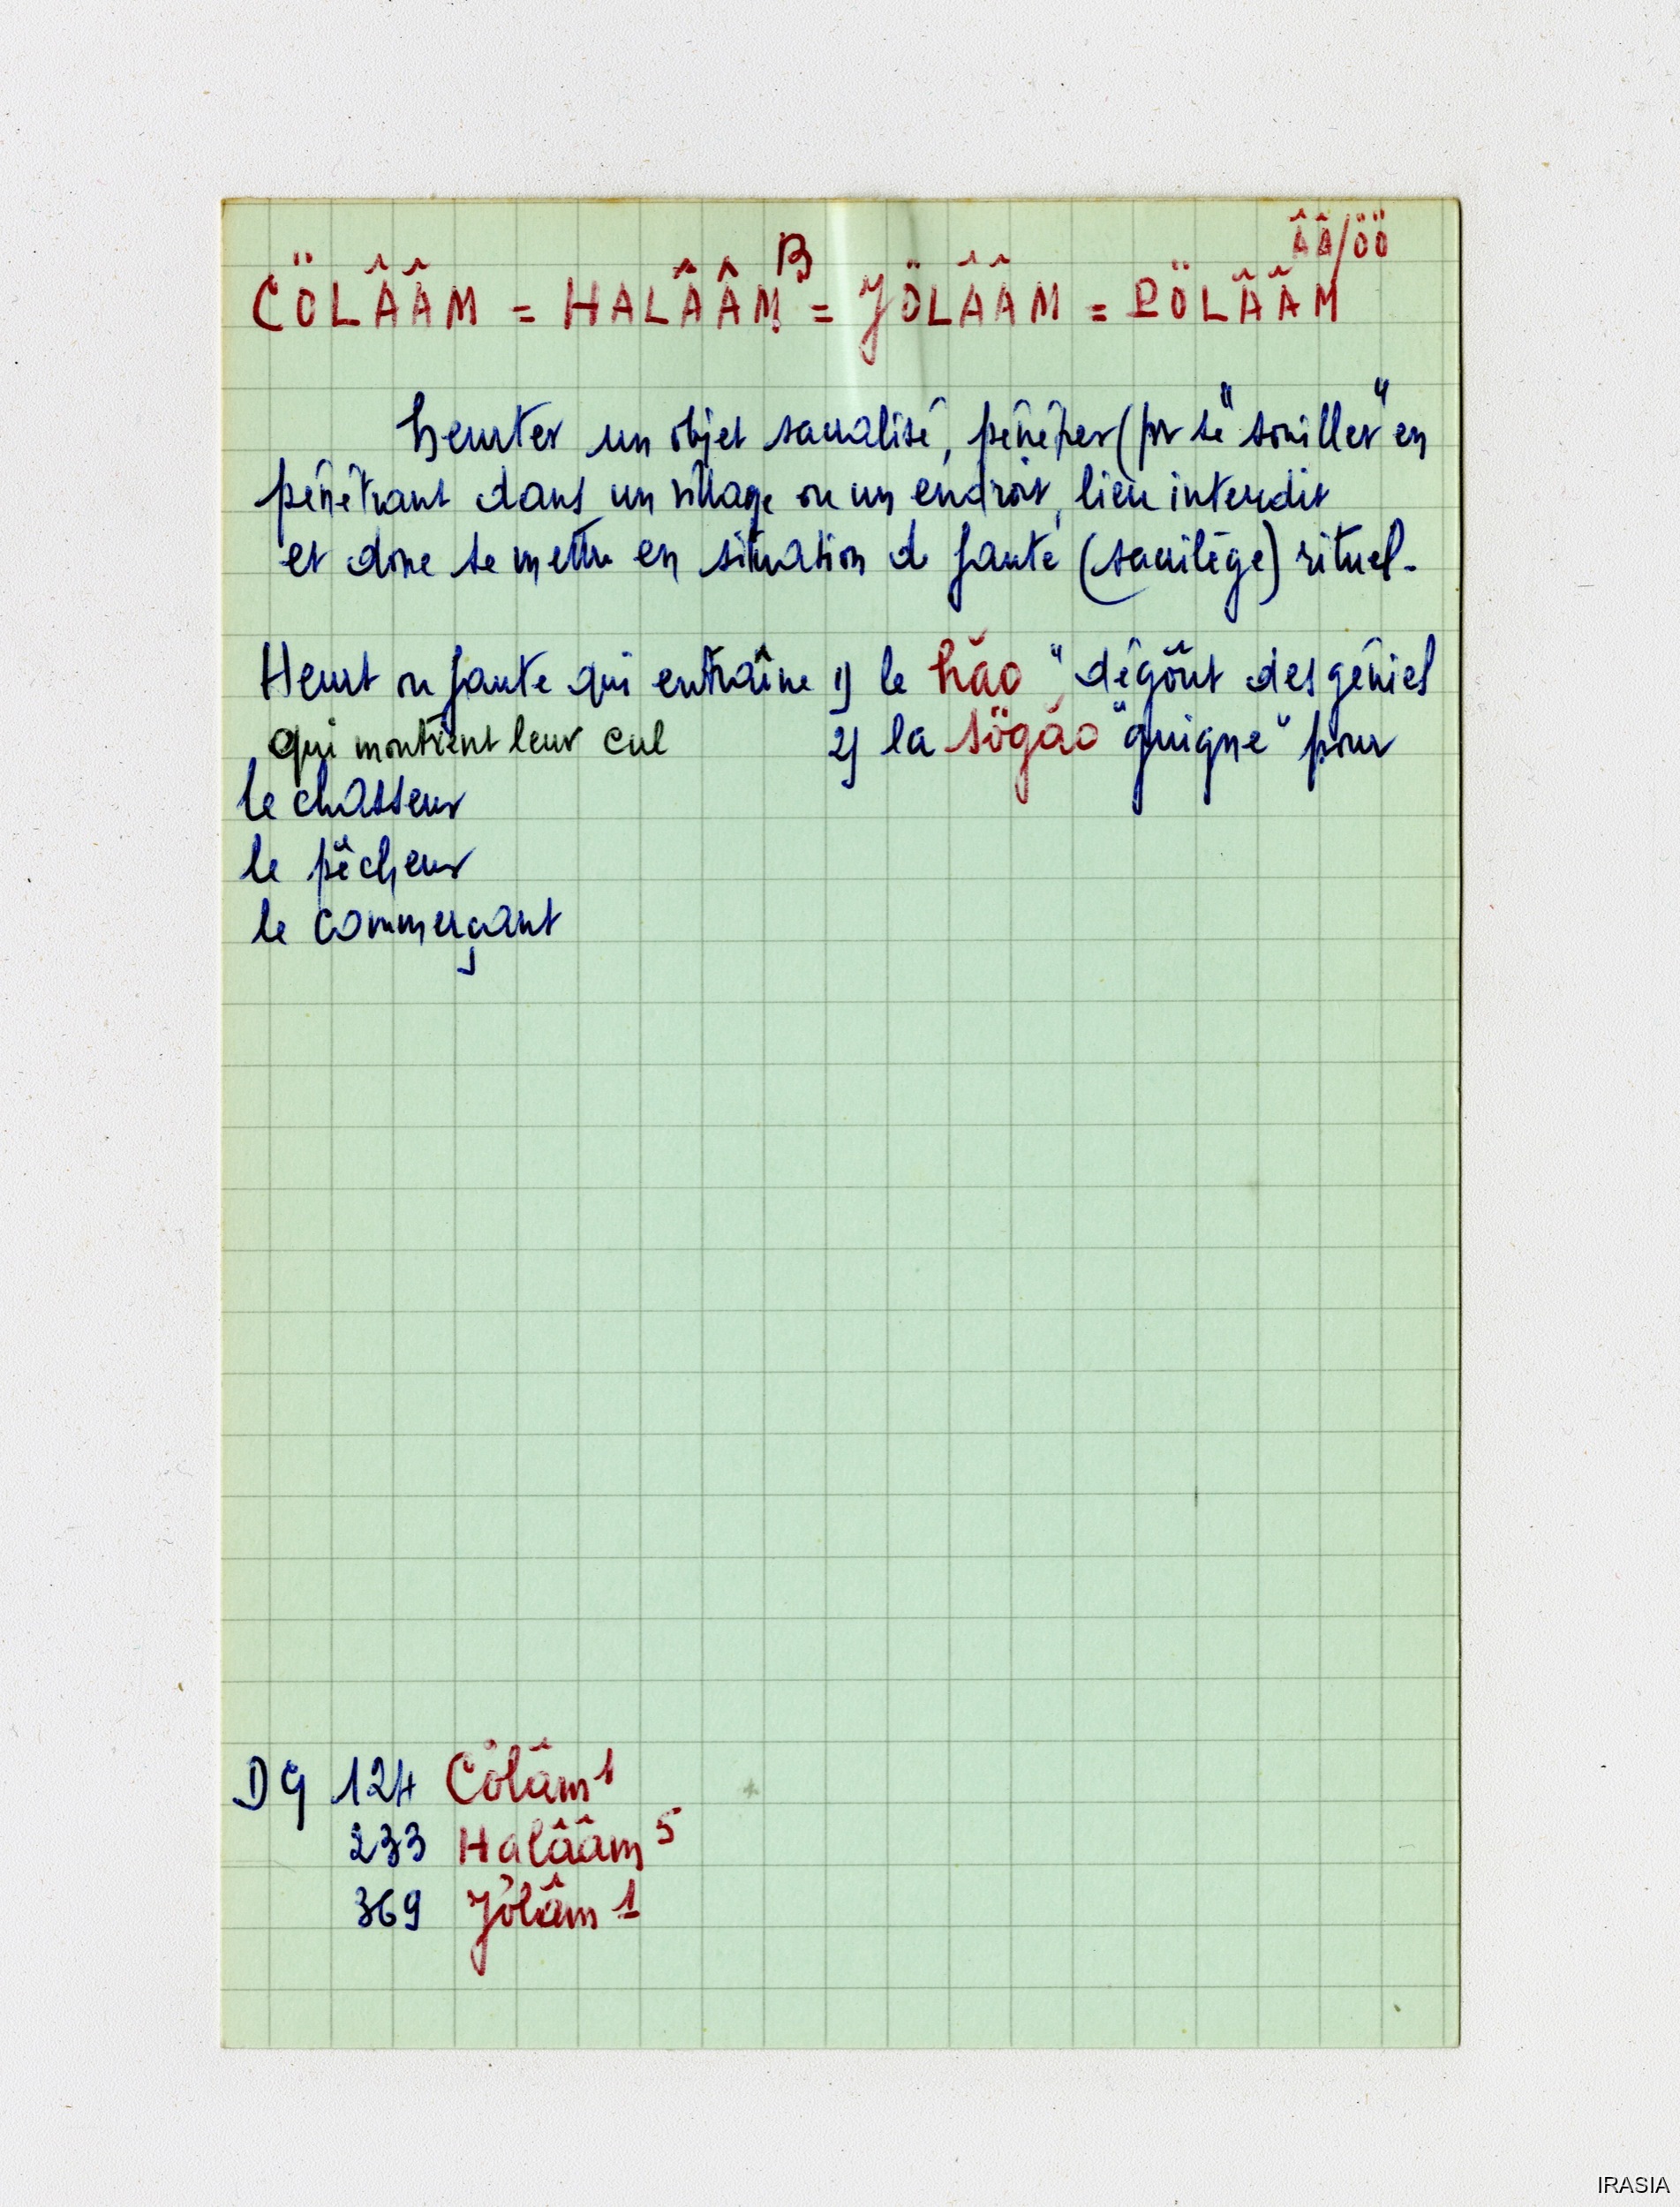 ÂÂ/ÖÖ
CÖLÂÂM = HALÂÂM B = JÖLÂÂM = PÖLÂÂM
heurter un objet sacralisé, pénétrer (pr se "souiller" en
pénétrant dans un village ou un endroit, lieu interdit
et donc se mettre en situation de faute (sacrilège) rituel.
Heurt ou faute qui entraîne 1) le hăo "dégoût des génies
qui montrent leur cul 2) la sögăo "guigne" pour
le chasseur
le pêcheur
le commerçant
DG 124 Cölâm 1
233 Halââm 5
369 Jölâm 1
IRASIA